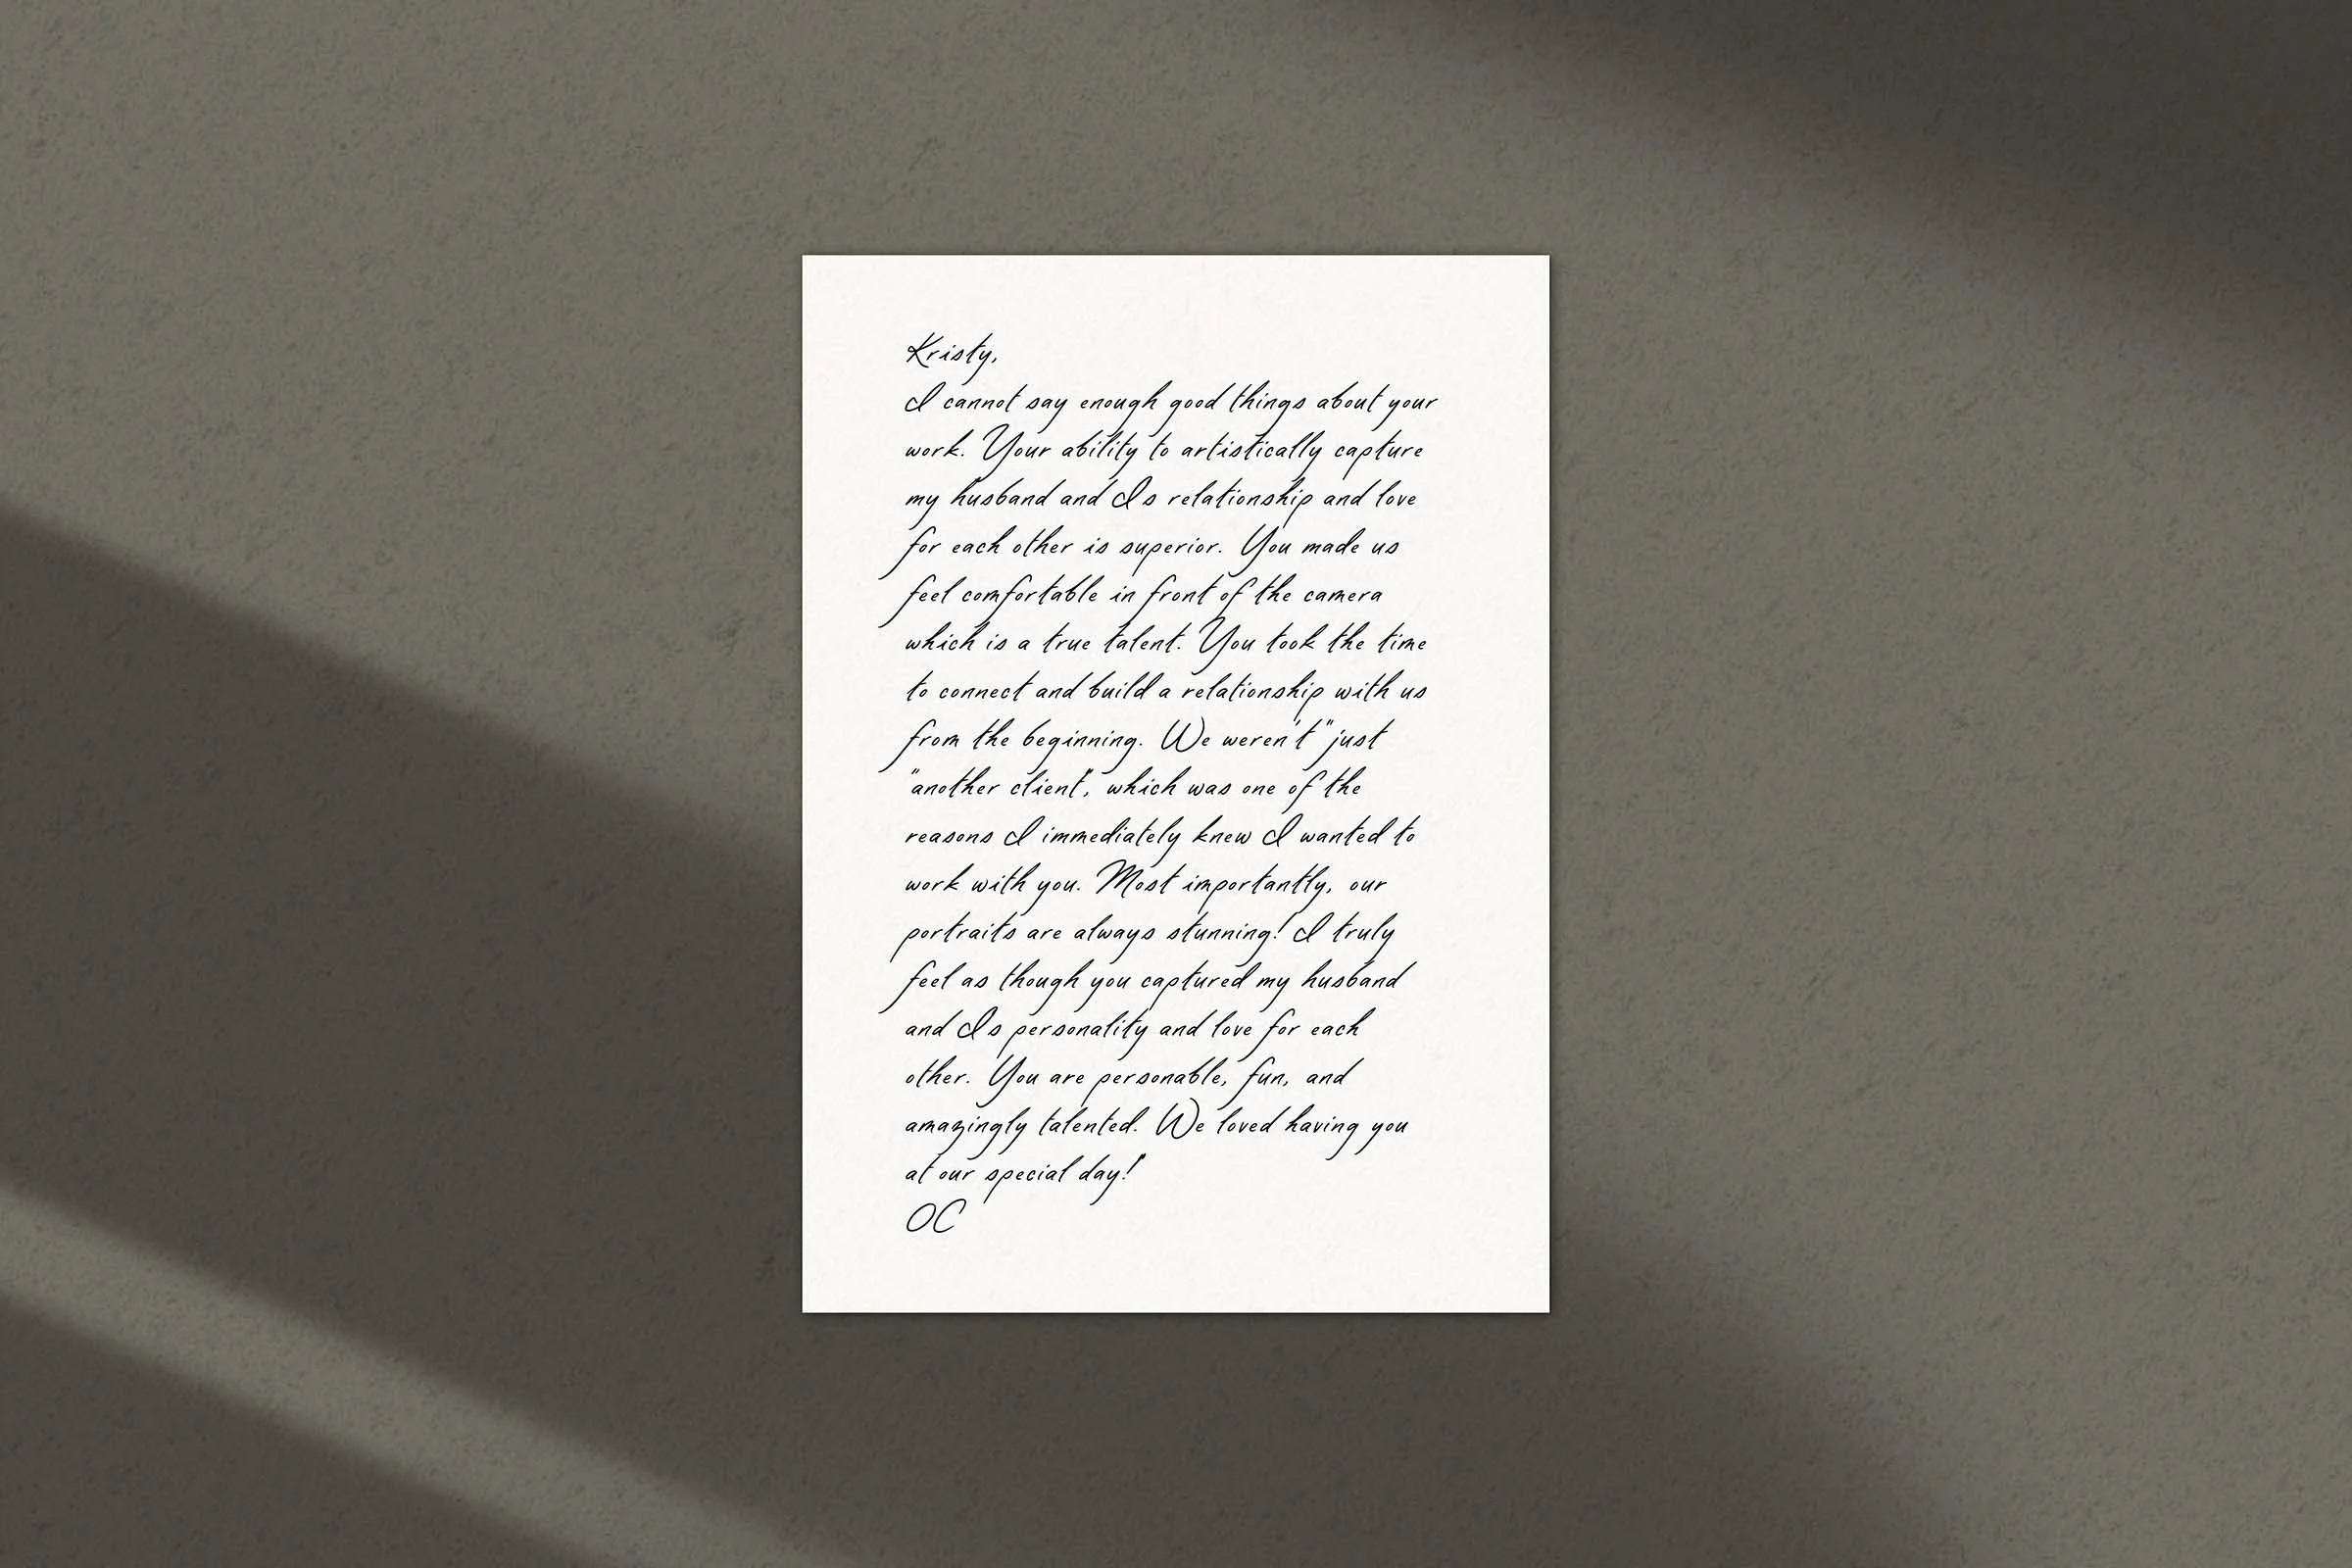 Kristy,
I cannot say enough good things about your
work. Your ability to artistically capture
my husband and Is relationship and love
for each other is superior. You made us
feel comfortable in front of the camera
which is a true talent. You took the time
to connect and build a relationship with us
from the beginning. We weren't "just
"another client", which was one of the
reasons I immediately knew I wanted to
work with you. Most importantly, our
portraits are always stunning! I truly
feel as though you captured my husband
and Is personality and love for each
other. You are personable, fun, and
amazingly talented. We loved having you
at our special day!
OC